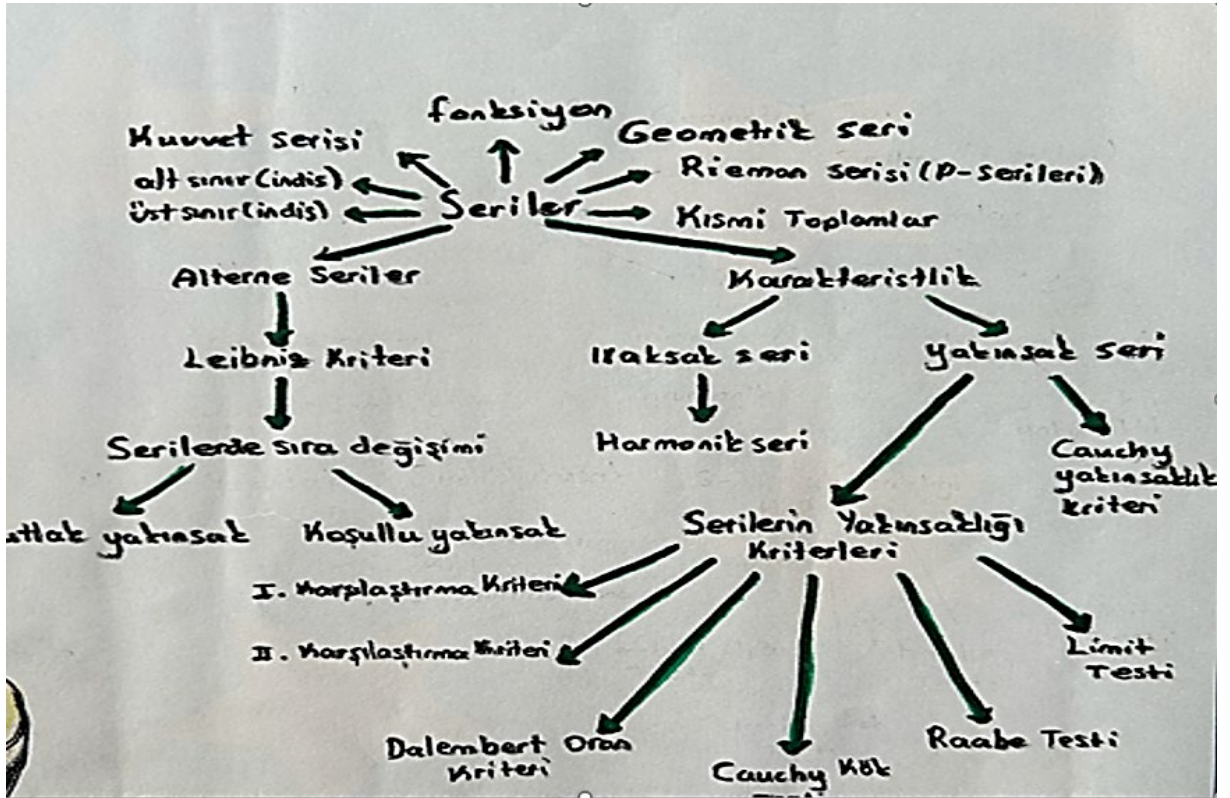 fonksiyon
Kuvvet serisi
Geometrik seri
alt sınır (indis)
Rieman serisi (P-serileri)
üst sınır (indis)
Seriler
Kısmi Toplamlar
Alterne Seriler
Karakteristlik
Leibniz Kriteri
Iraksak seri
yakınsak seri
Serilerde sıra değişimi
Harmonik seri
Cauchy
yakınsaklık
kriteri
yakınsak
Koşullu yakınsak
Serilerin Yakınsaklığı
Kriterleri
I. Karşılaştırma Kriteri
II. Karşılaştırma Kriteri
Limit
Testi
Dalembert Oran
Kriteri
Cauchy Kök
Raabe Testi